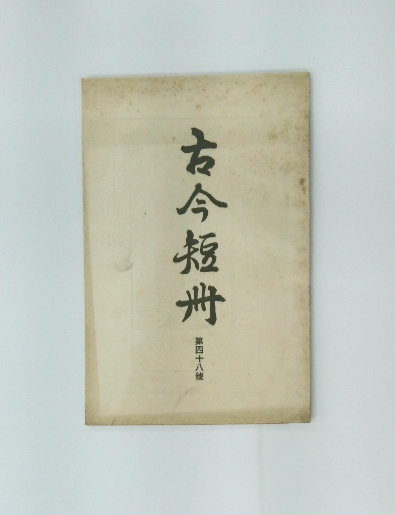 古今短冊
第四十八號